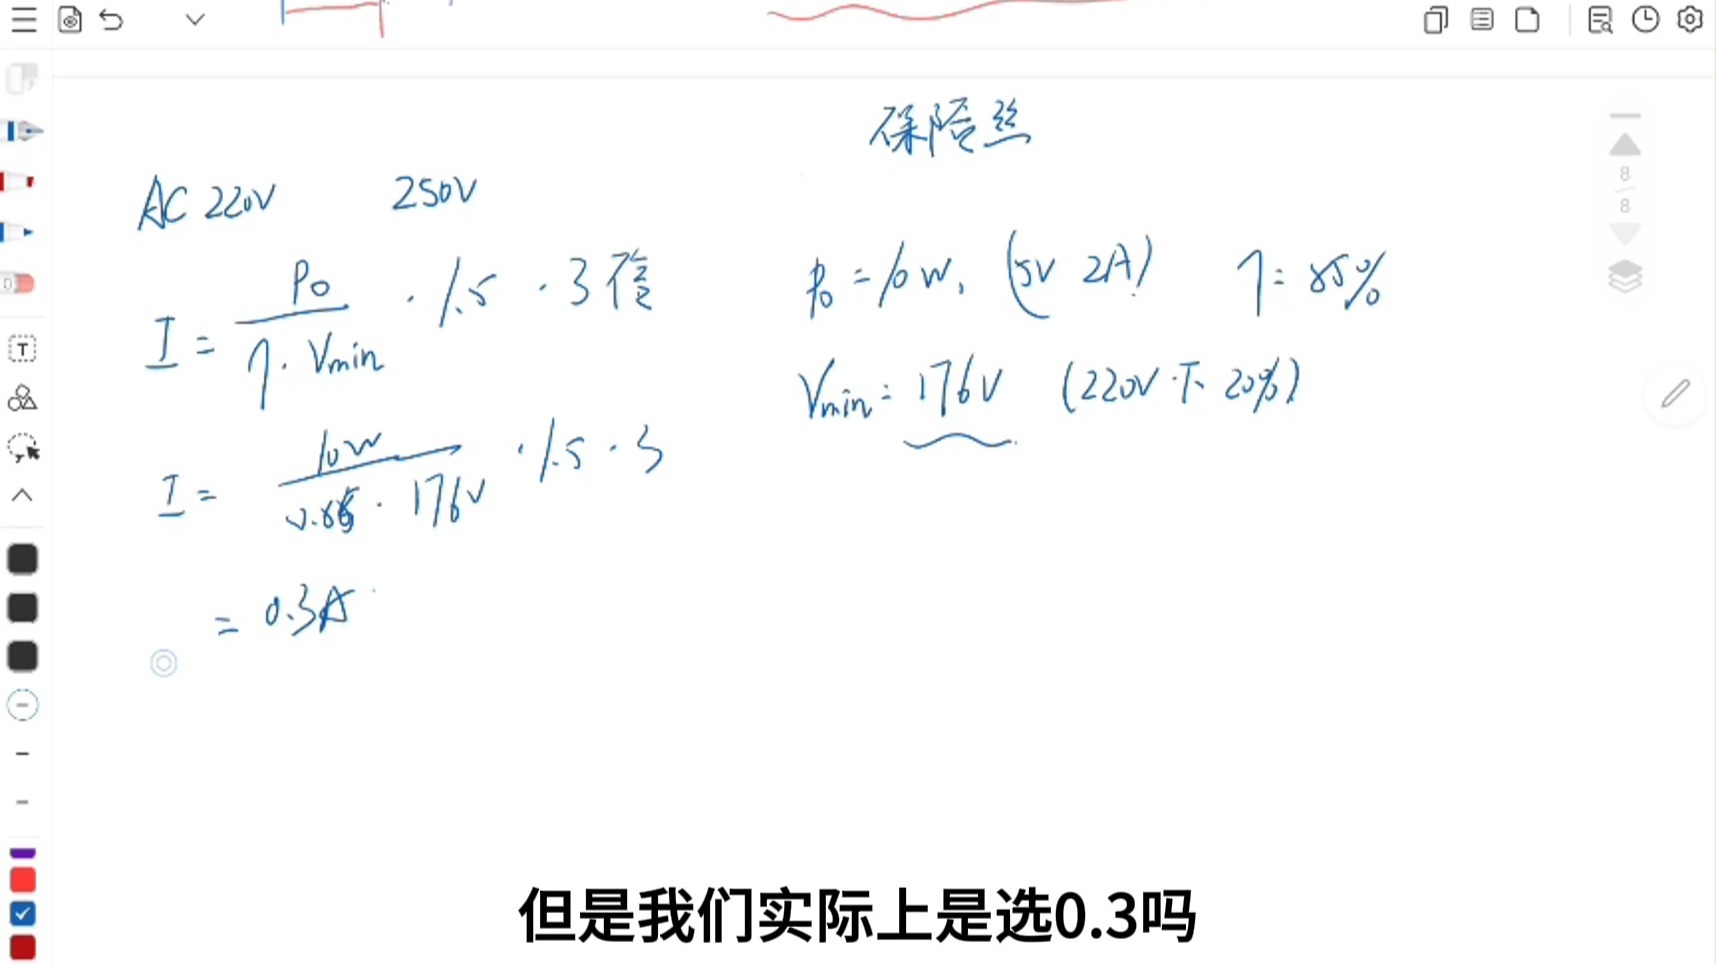 保险丝
AC 220V 250V
I = Po / η · Vmin · 1.5 · 3倍
Po = 10W, (5V 2A) η = 85%
Vmin = 176V (220V 下 20%)
I = 10W / 0.85 · 176V · 1.5 · 3
= 0.3A
8
8
T
但是我们实际上是选0.3吗